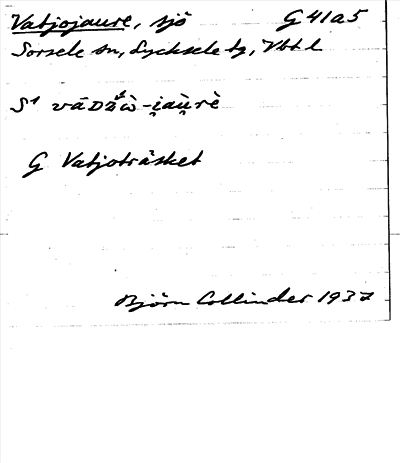 Vatjojaure, sjö G 41a5
Sorsele sn, Lycksele lg, Vbtl
S¹
G Vatjoträsket
Björn Collinder 1937